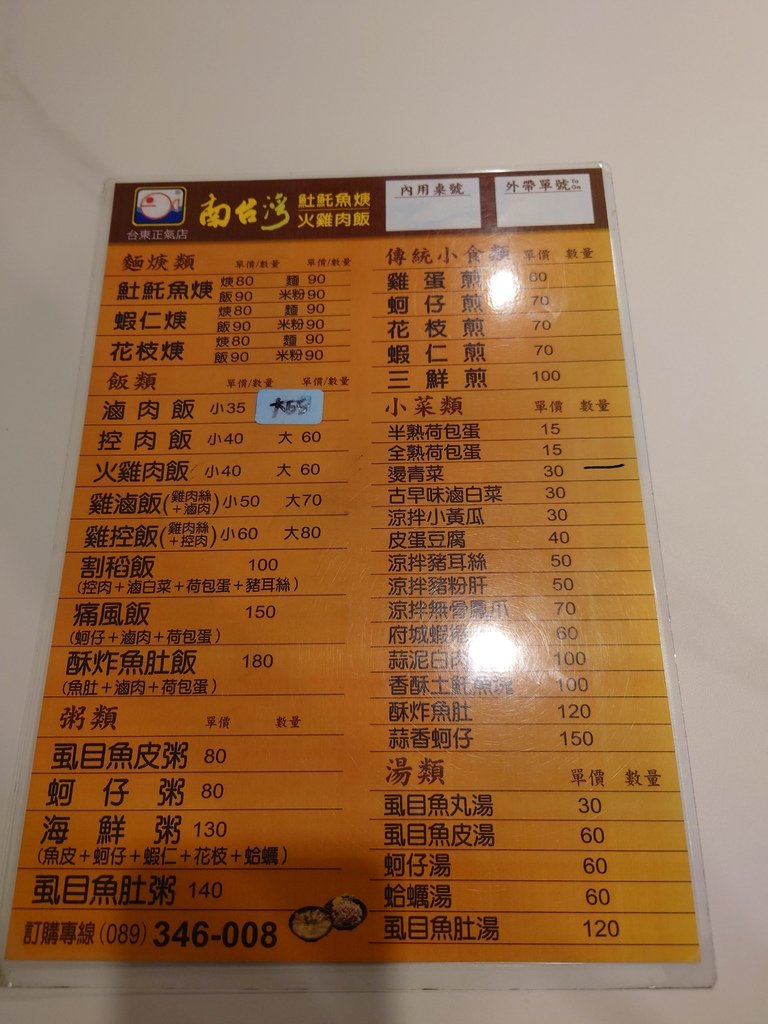 南台灣
魠魠魚焿
火雞肉飯
台東正氣店
內用桌號
外帶單號 To Go
麵焿類 單價/數量 單價/數量
魠魠魚焿 焿80 麵90
飯90 米粉90
蝦仁焿 焿80 麵90
飯90 米粉90
花枝焿 焿80 麵90
飯90 米粉90
飯類 單價/數量 單價/數量
滷肉飯 小35
控肉飯 小40 大60
火雞肉飯 小40 大60
雞滷飯(雞肉絲+滷肉) 小50 大70
雞控飯(雞肉絲+控肉) 小60 大80
割稻飯 100
(控肉+滷白菜+荷包蛋+豬耳絲)
痛風飯 150
(蚵仔+滷肉+荷包蛋)
酥炸魚肚飯 180
(魚肚+滷肉+荷包蛋)
粥類 單價 數量
虱目魚皮粥 80
蚵仔粥 80
海鮮粥 130
(魚皮+蚵仔+蝦仁+花枝+蛤蠣)
虱目魚肚粥 140
訂購專線(089)346-008
傳統小食類 單價 數量
雞蛋煎 60
蚵仔煎 70
花枝煎 70
蝦仁煎 70
三鮮煎 100
小菜類 單價 數量
半熟荷包蛋 15
全熟荷包蛋 15
燙青菜 30
古早味滷白菜 30
涼拌小黃瓜 30
皮蛋豆腐 40
涼拌豬耳絲 50
涼拌豬粉肝 50
涼拌無骨鳳爪 70
府城蝦捲 60
蒜泥白肉 100
香酥土魠魚塊 100
酥炸魚肚 120
蒜香蚵仔 150
湯類 單價 數量
虱目魚丸湯 30
虱目魚皮湯 60
蚵仔湯 60
蛤蠣湯 60
虱目魚肚湯 120